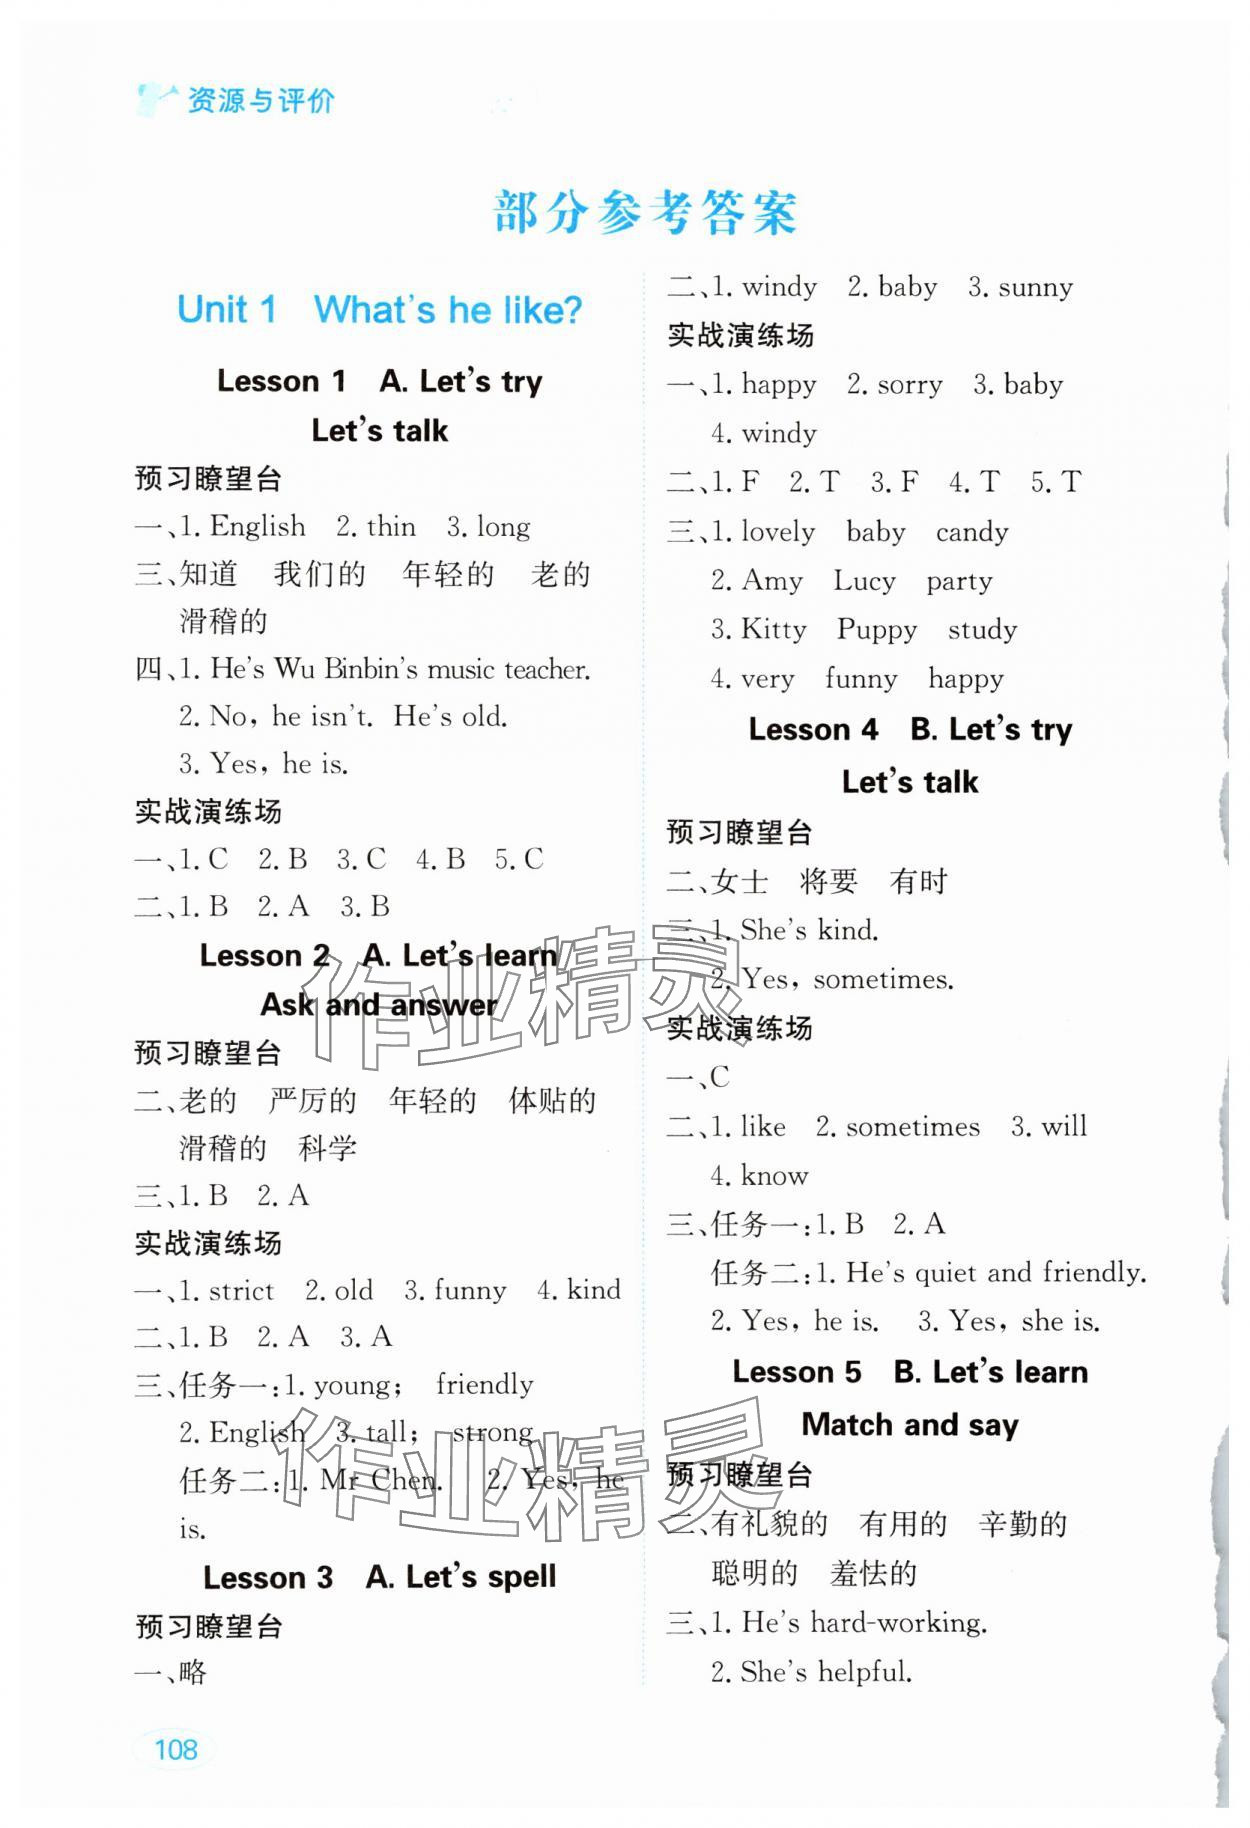 资源与评价
部分参考答案
Unit 1 What's he like?
Lesson 1 A. Let's try
Let's talk
预习瞭望台
一、1. English 2. thin 3. long
三、知道 我们的 年轻的 老的
滑稽的
四、1. He's Wu Binbin's music teacher.
2. No, he isn't. He's old.
3. Yes, he is.
实战演练场
一、1. C 2. B 3. C 4. B 5. C
二、1. B 2. A 3. B
Lesson 2 A. Let's learn
Ask and answer
预习瞭望台
二、老的 严厉的 年轻的 体贴的
滑稽的 科学
三、1. B 2. A
实战演练场
一、1. strict 2. old 3. funny 4. kind
二、1. B 2. A 3. A
三、任务一:1. young; friendly
2. English 3. tall; strong
任务二:1. Mr Chen. 2. Yes, he
is.
Lesson 3 A. Let's spell
预习瞭望台
一、略
二、1. windy 2. baby 3. sunny
实战演练场
一、1. happy 2. sorry 3. baby
4. windy
二、1. F 2. T 3. F 4. T 5. T
三、1. lovely baby candy
2. Amy Lucy party
3. Kitty Puppy study
4. very funny happy
Lesson 4 B. Let's try
Let's talk
预习瞭望台
二、女士 将要 有时
三、1. She's kind.
2. Yes, sometimes.
实战演练场
一、C
二、1. like 2. sometimes 3. will
4. know
三、任务一:1. B 2. A
任务二:1. He's quiet and friendly.
2. Yes, he is. 3. Yes, she is.
Lesson 5 B. Let's learn
Match and say
预习瞭望台
二、有礼貌的 有用的 辛勤的
聪明的 羞怯的
三、1. He's hard-working.
2. She's helpful.
108
作业精灵
作业精灵